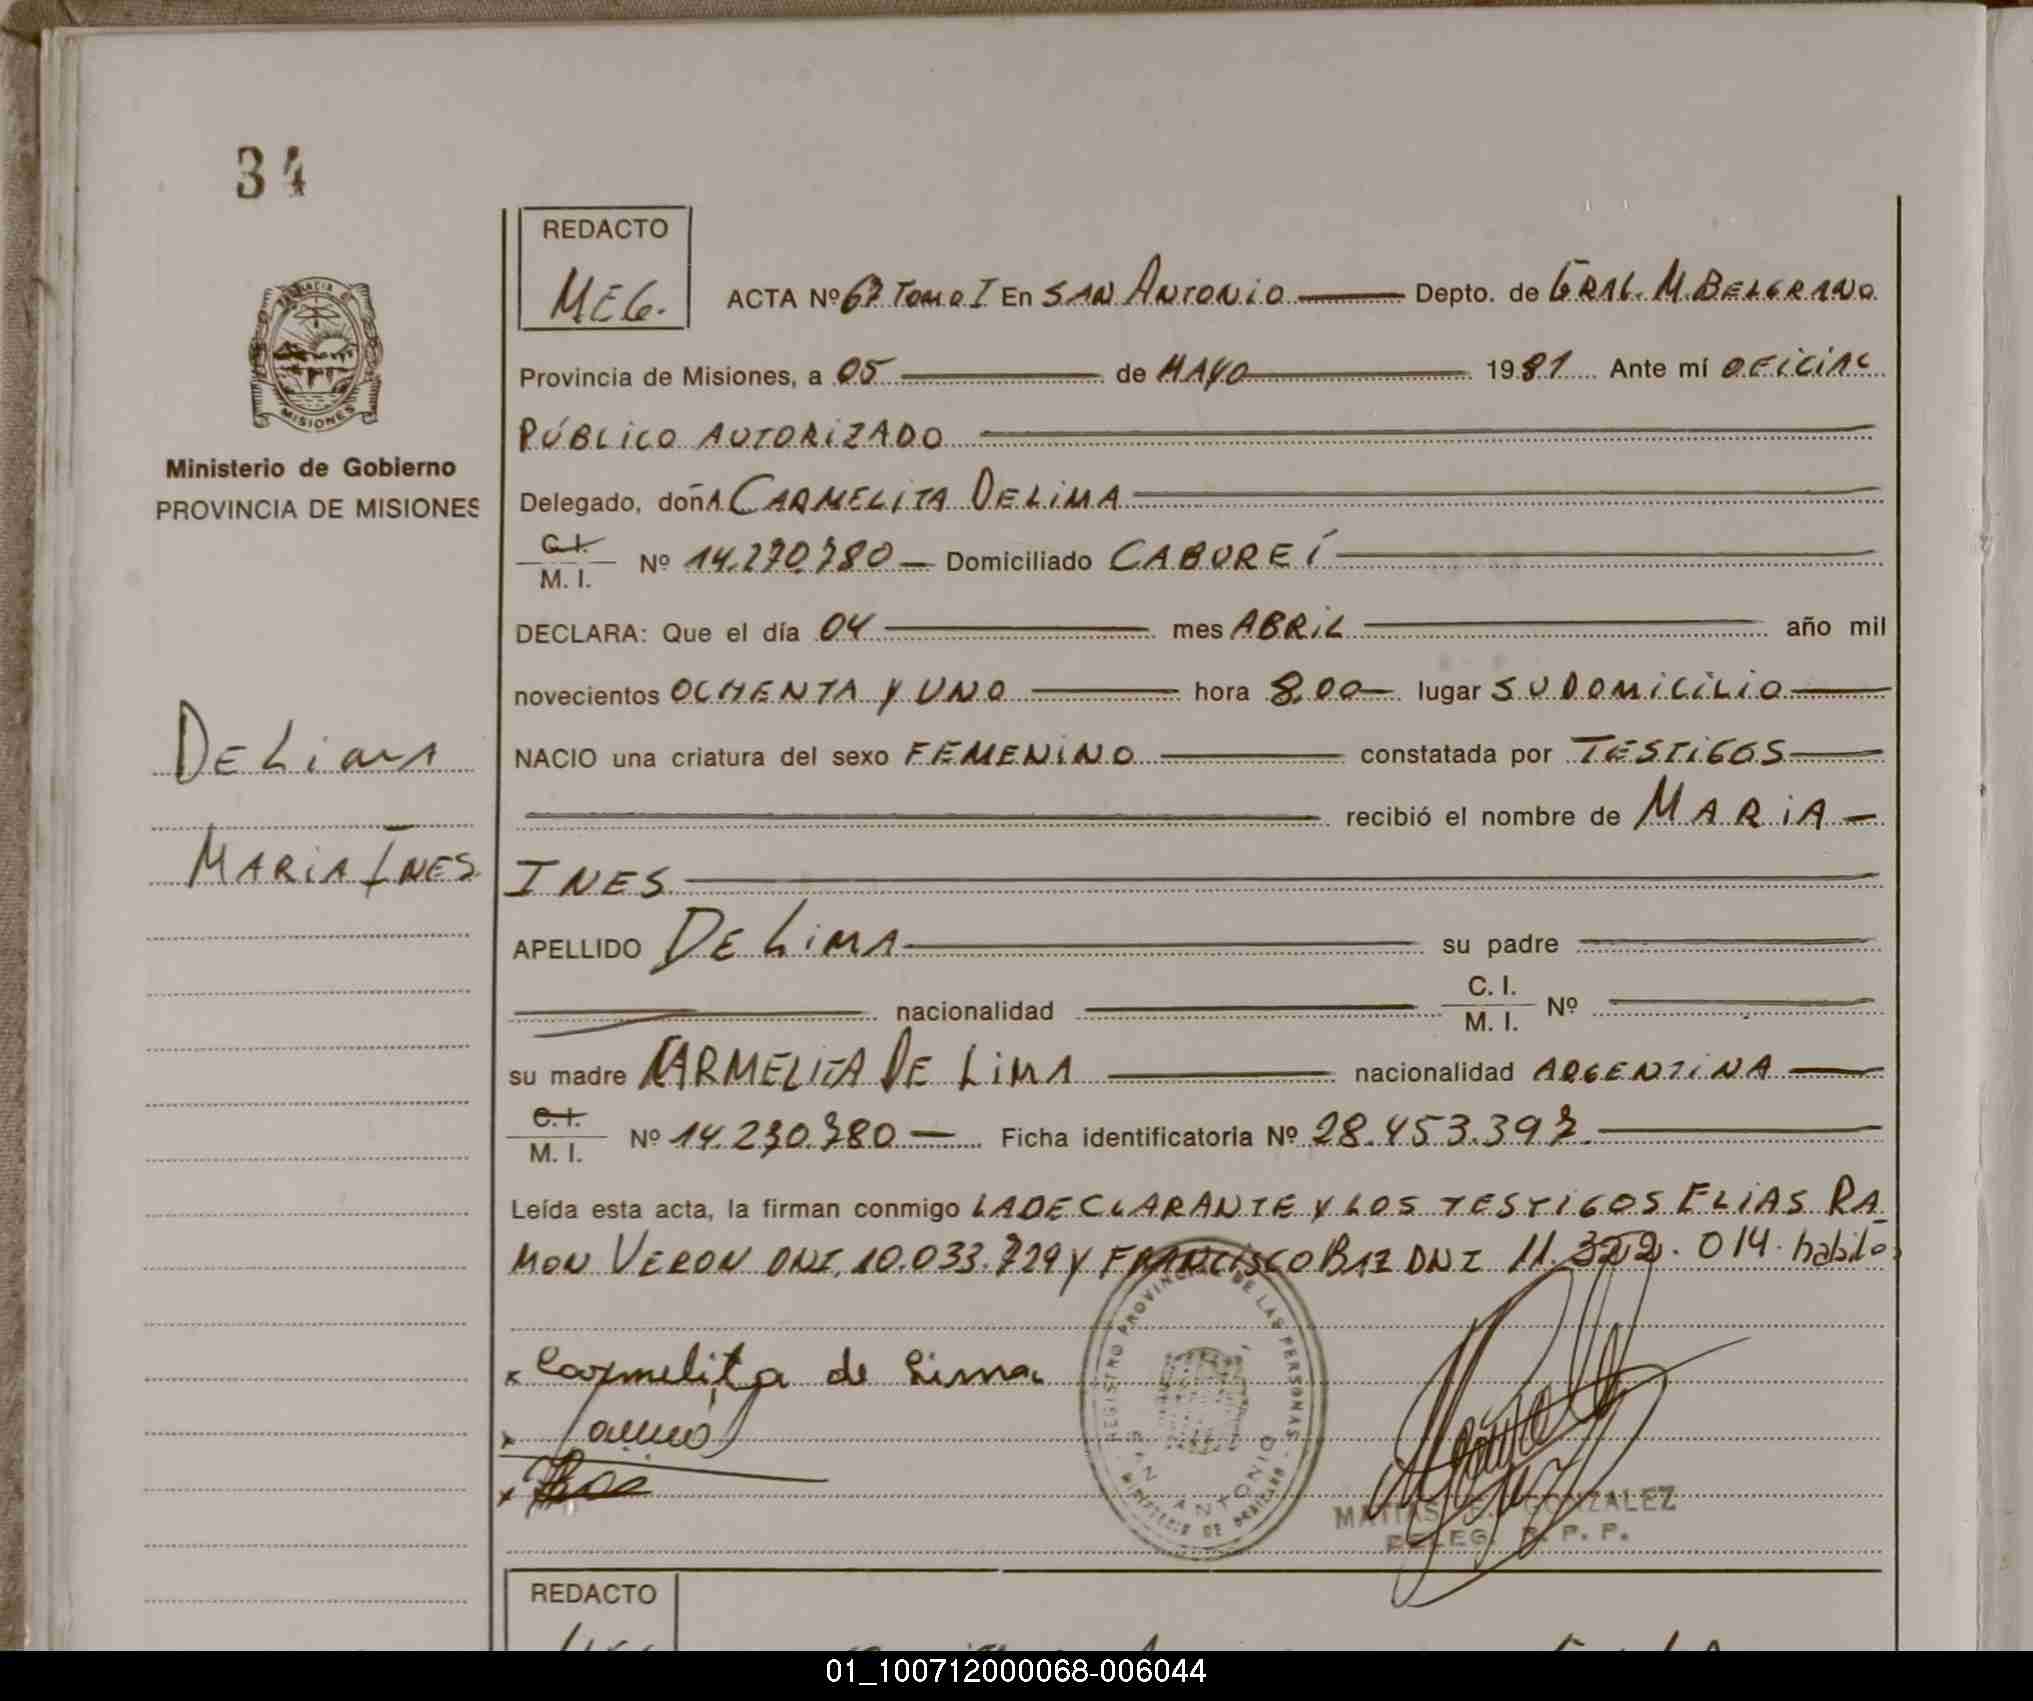 34
REDACTO
MEG.
ACTA Nº 67 Tomo I En SAN ANTONIO Depto. de GRAL. M. BELGRANO
Provincia de Misiones, a 05 de MAYO 1981 Ante mí OFICIAL
PÚBLICO AUTORIZADO
MISIONES
Ministerio de Gobierno
PROVINCIA DE MISIONES
Delegado, doñA CARMELITA DE LIMA
C. I.
M. I. Nº 14.270.780 Domiciliado CABUREÍ
DECLARA: Que el día 04 mes ABRIL año mil
novecientos OCHENTA Y UNO hora 8,00 lugar SU DOMICILIO
DE Lima
NACIO una criatura del sexo FEMENINO constatada por TESTIGOS
recibió el nombre de MARIA
MARIA INES
INES
APELLIDO DE LIMA su padre
nacionalidad C. I.
M. I. Nº
su madre CARMELITA DE LIMA nacionalidad ARGENTINA
C. I.
M. I. Nº 14.270.780 Ficha identificatoria Nº 28.453.397.
Leída esta acta, la firman conmigo LA DECLARANTE Y LOS TESTIGOS ELIAS RA
MON VERON DNI. 10.033.729 Y FRANCISCO BAZ DNI 11.352.014. habilo
Carmelita de Lima
REGISTRO PROVINCIAL DE LAS PERSONAS
SAN ANTONIO
MINISTERIO DE GOBIERNO
MATIAS E. GONZALEZ
DELEG. R. P. P.
REDACTO
01_100712000068-006044